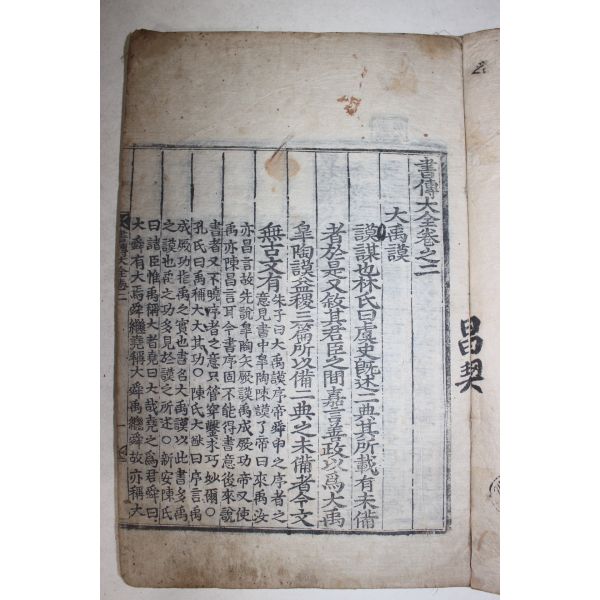 昌契
書傳大全卷之二
大禹謨
謨謀也林氏曰虞史旣述二典其所載有未備
者於是又敘其君臣之間嘉言善政以爲大禹
皐陶謨益稷三篇所以備二典之未備者今文
無古文有
朱子曰大禹謨序帝舜申之序者之
意見書中皐陶陳謨了帝曰來禹汝
亦昌言故先說皐陶矢厥謨禹成厥功帝又使
禹亦陳昌言耳今書序固不能得書意後來說
書者又不曉序者之意只管穿鑿求巧妙爾○
孔氏曰禹稱大大其功○陳氏大猷曰序言禹
成厥功指禹之實也書名大禹謨以此書多禹
之謨也禹之功多見於謨之所述○新安陳氏
曰諸臣惟禹稱大者堯曰大哉堯之爲君舜曰
大舜有大焉舜繼堯稱大舜禹繼舜故亦稱大
書傳大全卷二
一